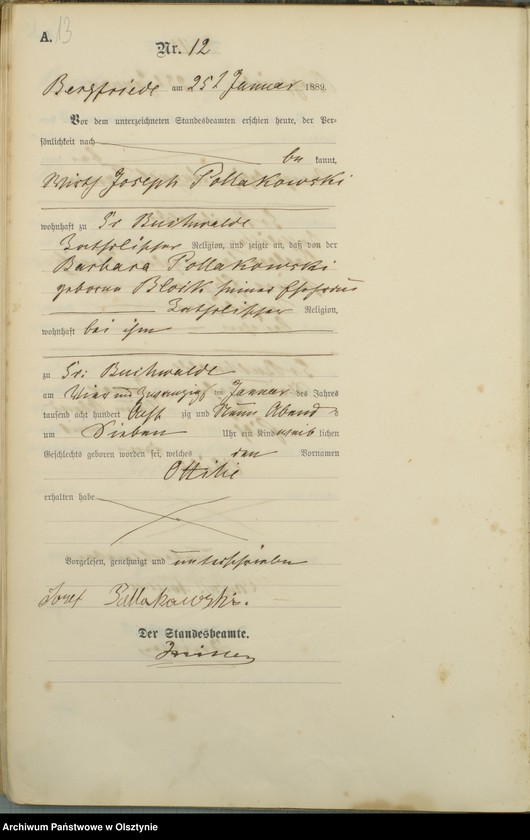 A. 13
Nr. 12
Bergfriede am 25t Januar 1889.
Vor dem unterzeichneten Standesbeamten erschien heute, der Per-
sönlichkeit nach
be kannt,
Wirth Joseph Pollakowski
wohnhaft zu Gr Buchwalde
katholischer Religion, und zeigte an, daß von der
Barbara Pollakowski
geborenen Block seiner Ehefrau
katholischer Religion,
wohnhaft bei ihm
zu Gr: Buchwalde
am Vier und Zwanzigsten Januar des Jahres
tausend acht hundert Acht zig und Neun Abends
um Sieben Uhr ein Kind weib lichen
Geschlechts geboren worden sei, welches den Vornamen
Ottilie
erhalten habe
Vorgelesen, genehmigt und unterschrieben
Josef Pollakowski.
Der Standesbeamte.
Archiwum Państwowe w Olsztynie